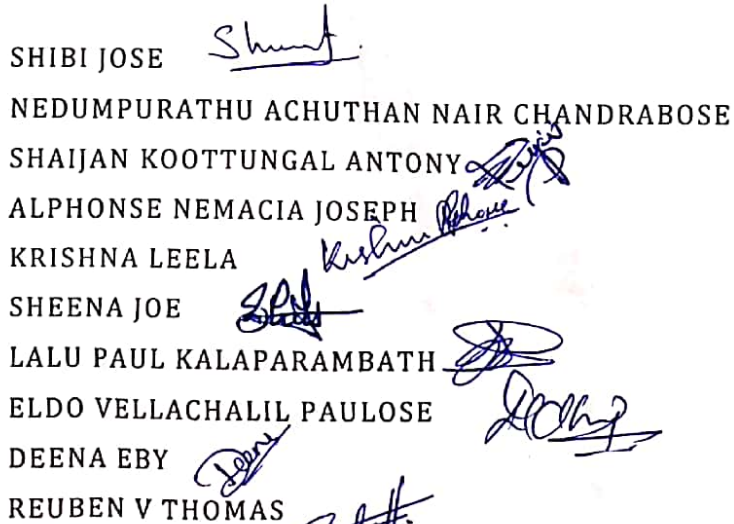 SHIBI JOSE
NEDUMPURATHU ACHUTHAN NAIR CHANDRABOSE
SHAIJAN KOOTTUNGAL ANTONY
ALPHONSE NEMACIA JOSEPH
KRISHNA LEELA Krishna
SHEENA JOE
LALU PAUL KALAPARAMBATH
ELDO VELLACHALIL PAULOSE
DEENA EBY Deena
REUBEN V THOMAS